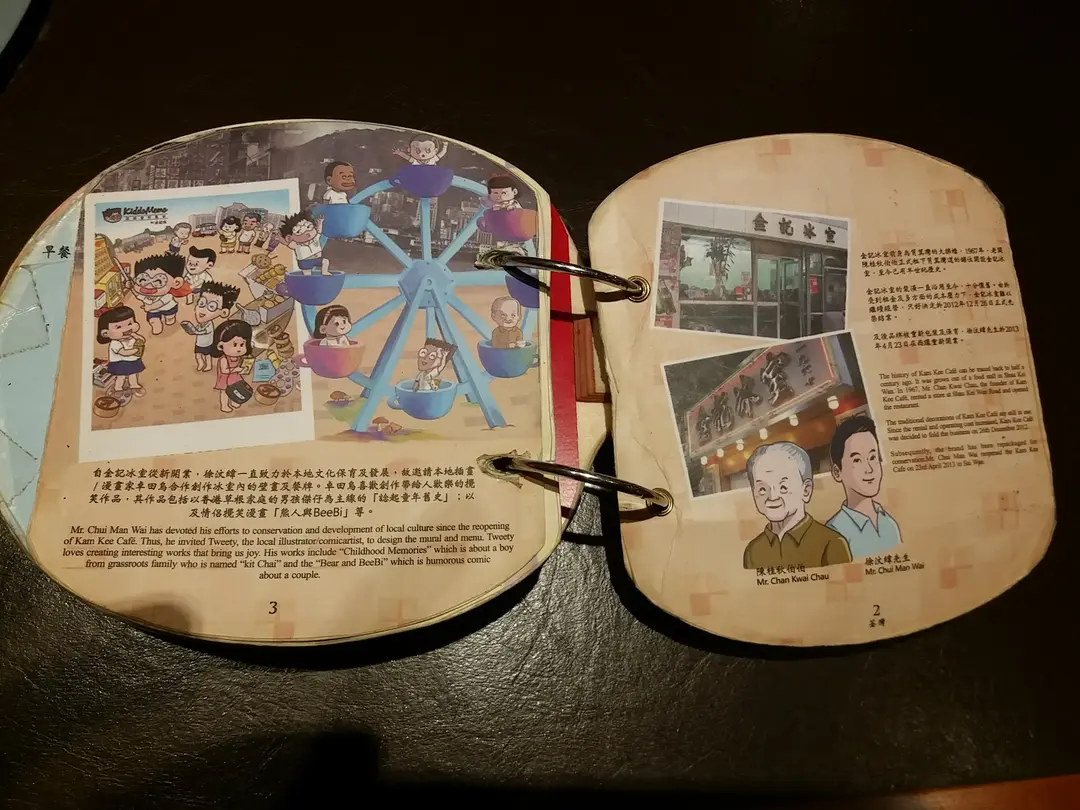 早餐
KiddoMemo
自金記冰室從新開業，徐汶緯一直致力於本地文化保育及發展，故邀請本地插畫
/漫畫家卓田鳥合作創作冰室內的壁畫及餐牌。卓田鳥喜歡創作帶給人歡樂的攪
笑作品，其作品包括以香港草根家庭的男孩傑仔為主線的「諗起童年舊史」；以
及情侶攪笑漫畫「熊人與BeeBi」等。
Mr. Chui Man Wai has devoted his efforts to conservation and development of local culture since the reopening
of Kam Kee Café. Thus, he invited Tweety, the local illustrator/comicartist, to design the mural and menu. Tweety
loves creating interesting works that bring us joy. His works include “Childhood Memories” which is about a boy
from grassroots family who is named “kit Chai” and the “Bear and BeeBi” which is humorous comic
about a couple.
3
金記冰室
金記冰室
金記冰室前身為筲箕灣的大排檔，1967年，老闆
陳桂秋伯伯正式租下筲箕灣道的鋪位開設金記冰
室，至今已有半世紀歷史。
金記冰室的裝潢一直沿用至今，十分懷舊。由於
受到租金及多方面的成本壓力下，金記冰室難以
繼續經營，只好決定於2012年12月26日正式光
榮結業。
及後品牌被重新包裝及保育，徐汶緯先生於2013
年4月23日在西環重新開業。
The history of Kam Kee Café can be traced back to half a
century ago. It was grown out of a food stall in Shau Kei
Wan. In 1967, Mr. Chan Kwai Chau, the founder of Kam
Kee Café, rented a store at Shau Kei Wan Road and opened
the restaurant.
The traditional decorations of Kam Kee Café are still in use.
Since the rental and operating cost increased, Kam Kee Café
was decided to fold the business on 26th December 2012.
Subsequently, the brand has been repackaged for
conservation.Mr. Chui Man Wai reopened the Kam Kee
Cafe on 23rd April 2013 in Sai Wan.
陳桂秋伯伯
Mr. Chan Kwai Chau
徐汶緯先生
Mr. Chui Man Wai
2
荃灣